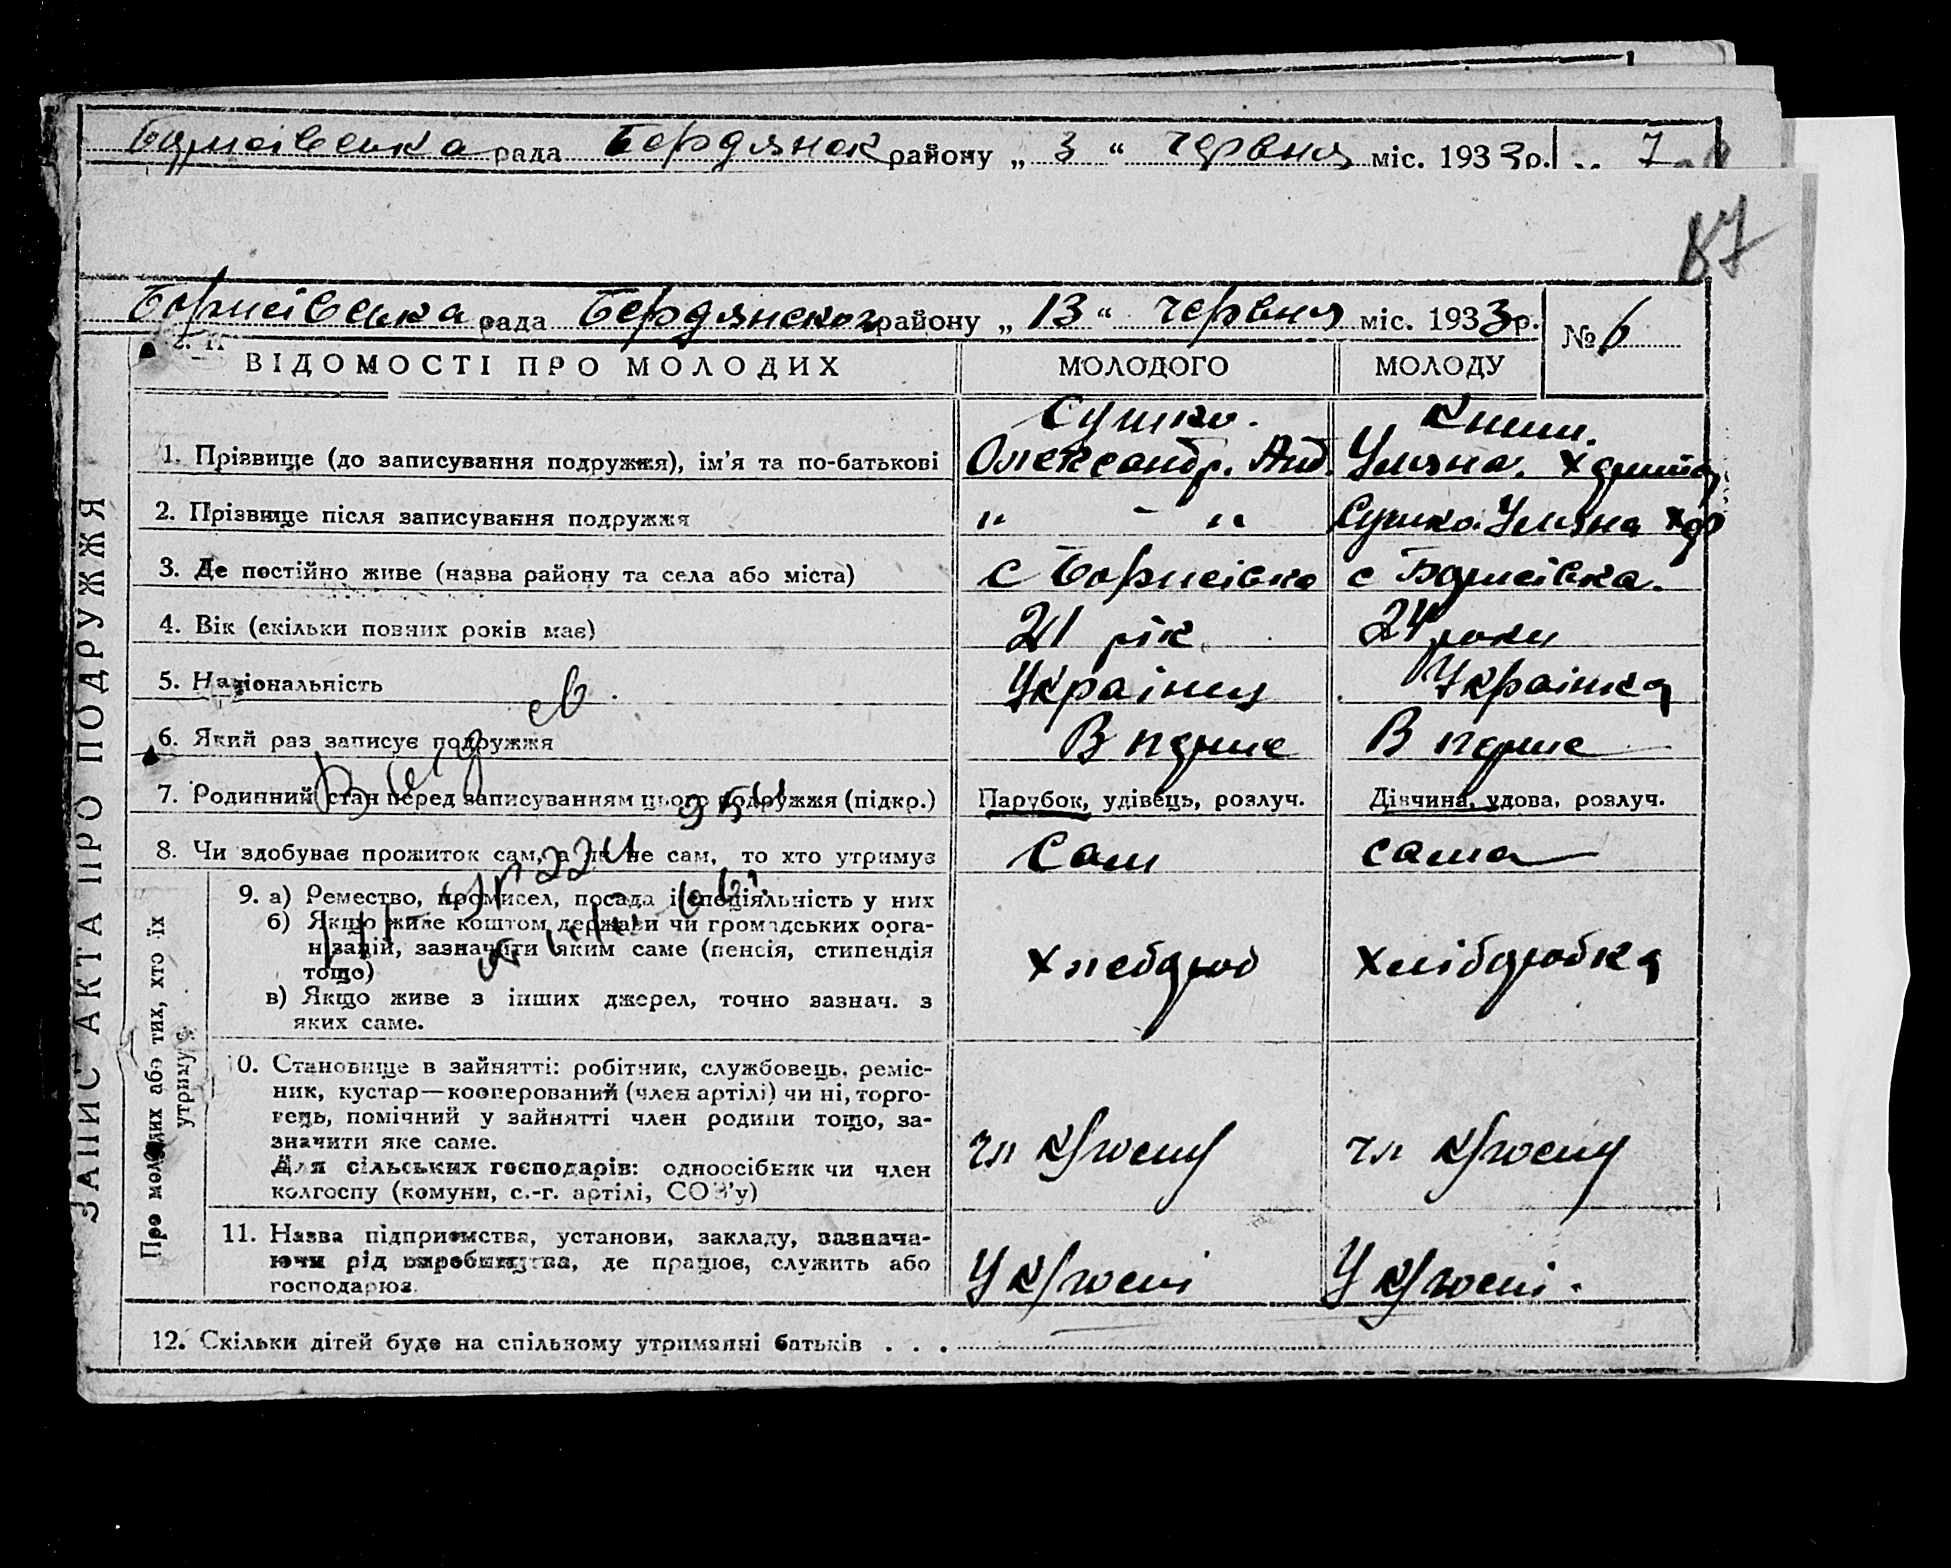 Борисівська рада Бердянск району „ 3 “ червня міс. 1933 р. 7
87
Борисівська рада Бердянског району „ 13 “ червня міс. 1933 р. № 6
ЗАПИС АКТА ПРО ПОДРУЖЖЯ
ВІДОМОСТІ ПРО МОЛОДИХ МОЛОДОГО МОЛОДУ
Сушко. Книш.
1. Прізвище (до записування подружжя), ім'я та по-батькові Олександр. Анд. Уляна. Харит
2. Прізвище після записування подружжя " - " Сушко Уляна Хар
3. Де постійно живе (назва району та села або міста) с Борисівка с Борисівка.
4. Вік (скільки повних років має) 21 рік 24 роки
5. Національність Українец Українка
6. Який раз записує подружжя В перше В перше
7. Родинний стан перед записуванням цього подружжя (підкр.) Парубок, удівець, розлуч. Дівчина, удова, розлуч.
8. Чи здобуває прожиток сам, а як не сам, то хто утримує Сам сама
Про молодих або тих, хто їх
утримує
9. а) Ремество, промисел, посада і спеціяльність у них
б) Якщо живе коштом держави чи громадських орга-
нізацій, зазначити яким саме (пенсія, стипендія
тощо) хлебороб хліборобка
в) Якщо живе з інших джерел, точно зазнач. з
яких саме.
10. Становище в зайнятті: робітник, службовець, реміс-
ник, кустар—кооперований (член артілі) чи ні, торго-
вець, помічний у зайнятті член родини тощо, за-
значити яке саме. чл к/госпу чл к/госпу
Для сільських господарів: одноосібник чи член
колгоспу (комуни, с.-г. артілі, СОЗ'у)
11. Назва підприємства, установи, закладу, зазнача-
ючи рід виробництва, де працює, служить або У к/госпі У к/госпі.
господарює.
12. Скільки дітей буде на спільному утриманні батьків . . .